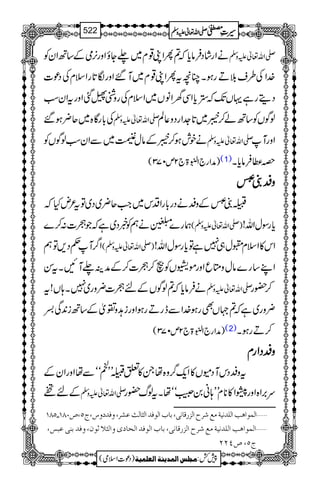 سیرتِ مصطفٰی صلی اللہ تعالٰی علیہ وسلم
522
صلی اللہ تعالٰی علیہ وسلم نے ارشاد فرمایا کہ تم پھر اپنی قوم میں چلے جاؤ اور نرمی کے ساتھ ان کو
خدا کی طرف بلاتے رہو۔ چنانچہ یہ پھر اپنی قوم میں آ گئے اور لگاتار اسلام کی دعوت
دیتے رہے یہاں تک کہ ستر یا اسی گھرانوں میں اسلام کی روشنی پھیل گئی اور یہ ان سب
لوگوں کو ساتھ لے کر خیبر میں تاجدارِ دو عالم صلی اللہ تعالٰی علیہ وسلم کی بارگاہ میں حاضر ہو گئے
اور آپ صلی اللہ تعالٰی علیہ وسلم نے خوش ہو کر خیبر کے مال غنیمت میں سے ان سب لوگوں کو
حصہ عطا فرمایا۔ (1) (مدارج النبوۃ ج۲ ص۳۷۰)
وفد بنی عبس
قبیلہ بنی عبس کے وفد نے دربار اقدس میں جب حاضری دی تو یہ عرض کیا کہ
یا رسول اللہ! (صلی اللہ تعالٰی علیہ وسلم) ہمارے مبلغین نے ہم کو خبر دی ہے کہ جو ہجرت نہ کرے
اس کا اسلام مقبول ہی نہیں ہے تو یا رسول اللہ! (صلی اللہ تعالٰی علیہ وسلم) اگر آپ حکم دیں تو ہم
اپنے سارے مال و متاع اور مویشیوں کو بیچ کر ہجرت کر کے مدینہ چلے آئیں۔ یہ سن
کر حضور صلی اللہ تعالٰی علیہ وسلم نے فرمایا کہ تم لوگوں کے لئے ہجرت ضروری نہیں۔ ہاں! یہ
ضروری ہے کہ تم جہاں بھی رہو خدا سے ڈرتے رہو اور زہد و تقویٰ کے ساتھ زندگی بسر
کرتے رہو۔ (2) (مدارج النبوۃ ج۲ ص۳۷۰)
وفد دارم
یہ وفد دس آدمیوں کا ایک گروہ تھا جن کا تعلق قبیلہ ’’لخم‘‘ سے تھا اور ان کے
سربراہ اور پیشوا کا نام ’’ہانی بن حبیب‘‘ تھا۔ یہ لوگ حضور صلی اللہ تعالٰی علیہ وسلم کے لئے تحفے
المواهب اللدنية مع شرح الزرقانی، باب الوفد الثالث عشر، وفد دوس، ج٥، ص١٨٠،١٨٥
المواهب اللدنية مع شرح الزرقانی، باب الوفد الحادی والثلاثون، وفد بنی عبس،
ج٥، ص٢٢٤
پیش کش: مجلس المدينة العلمية (دعوت اسلامی)